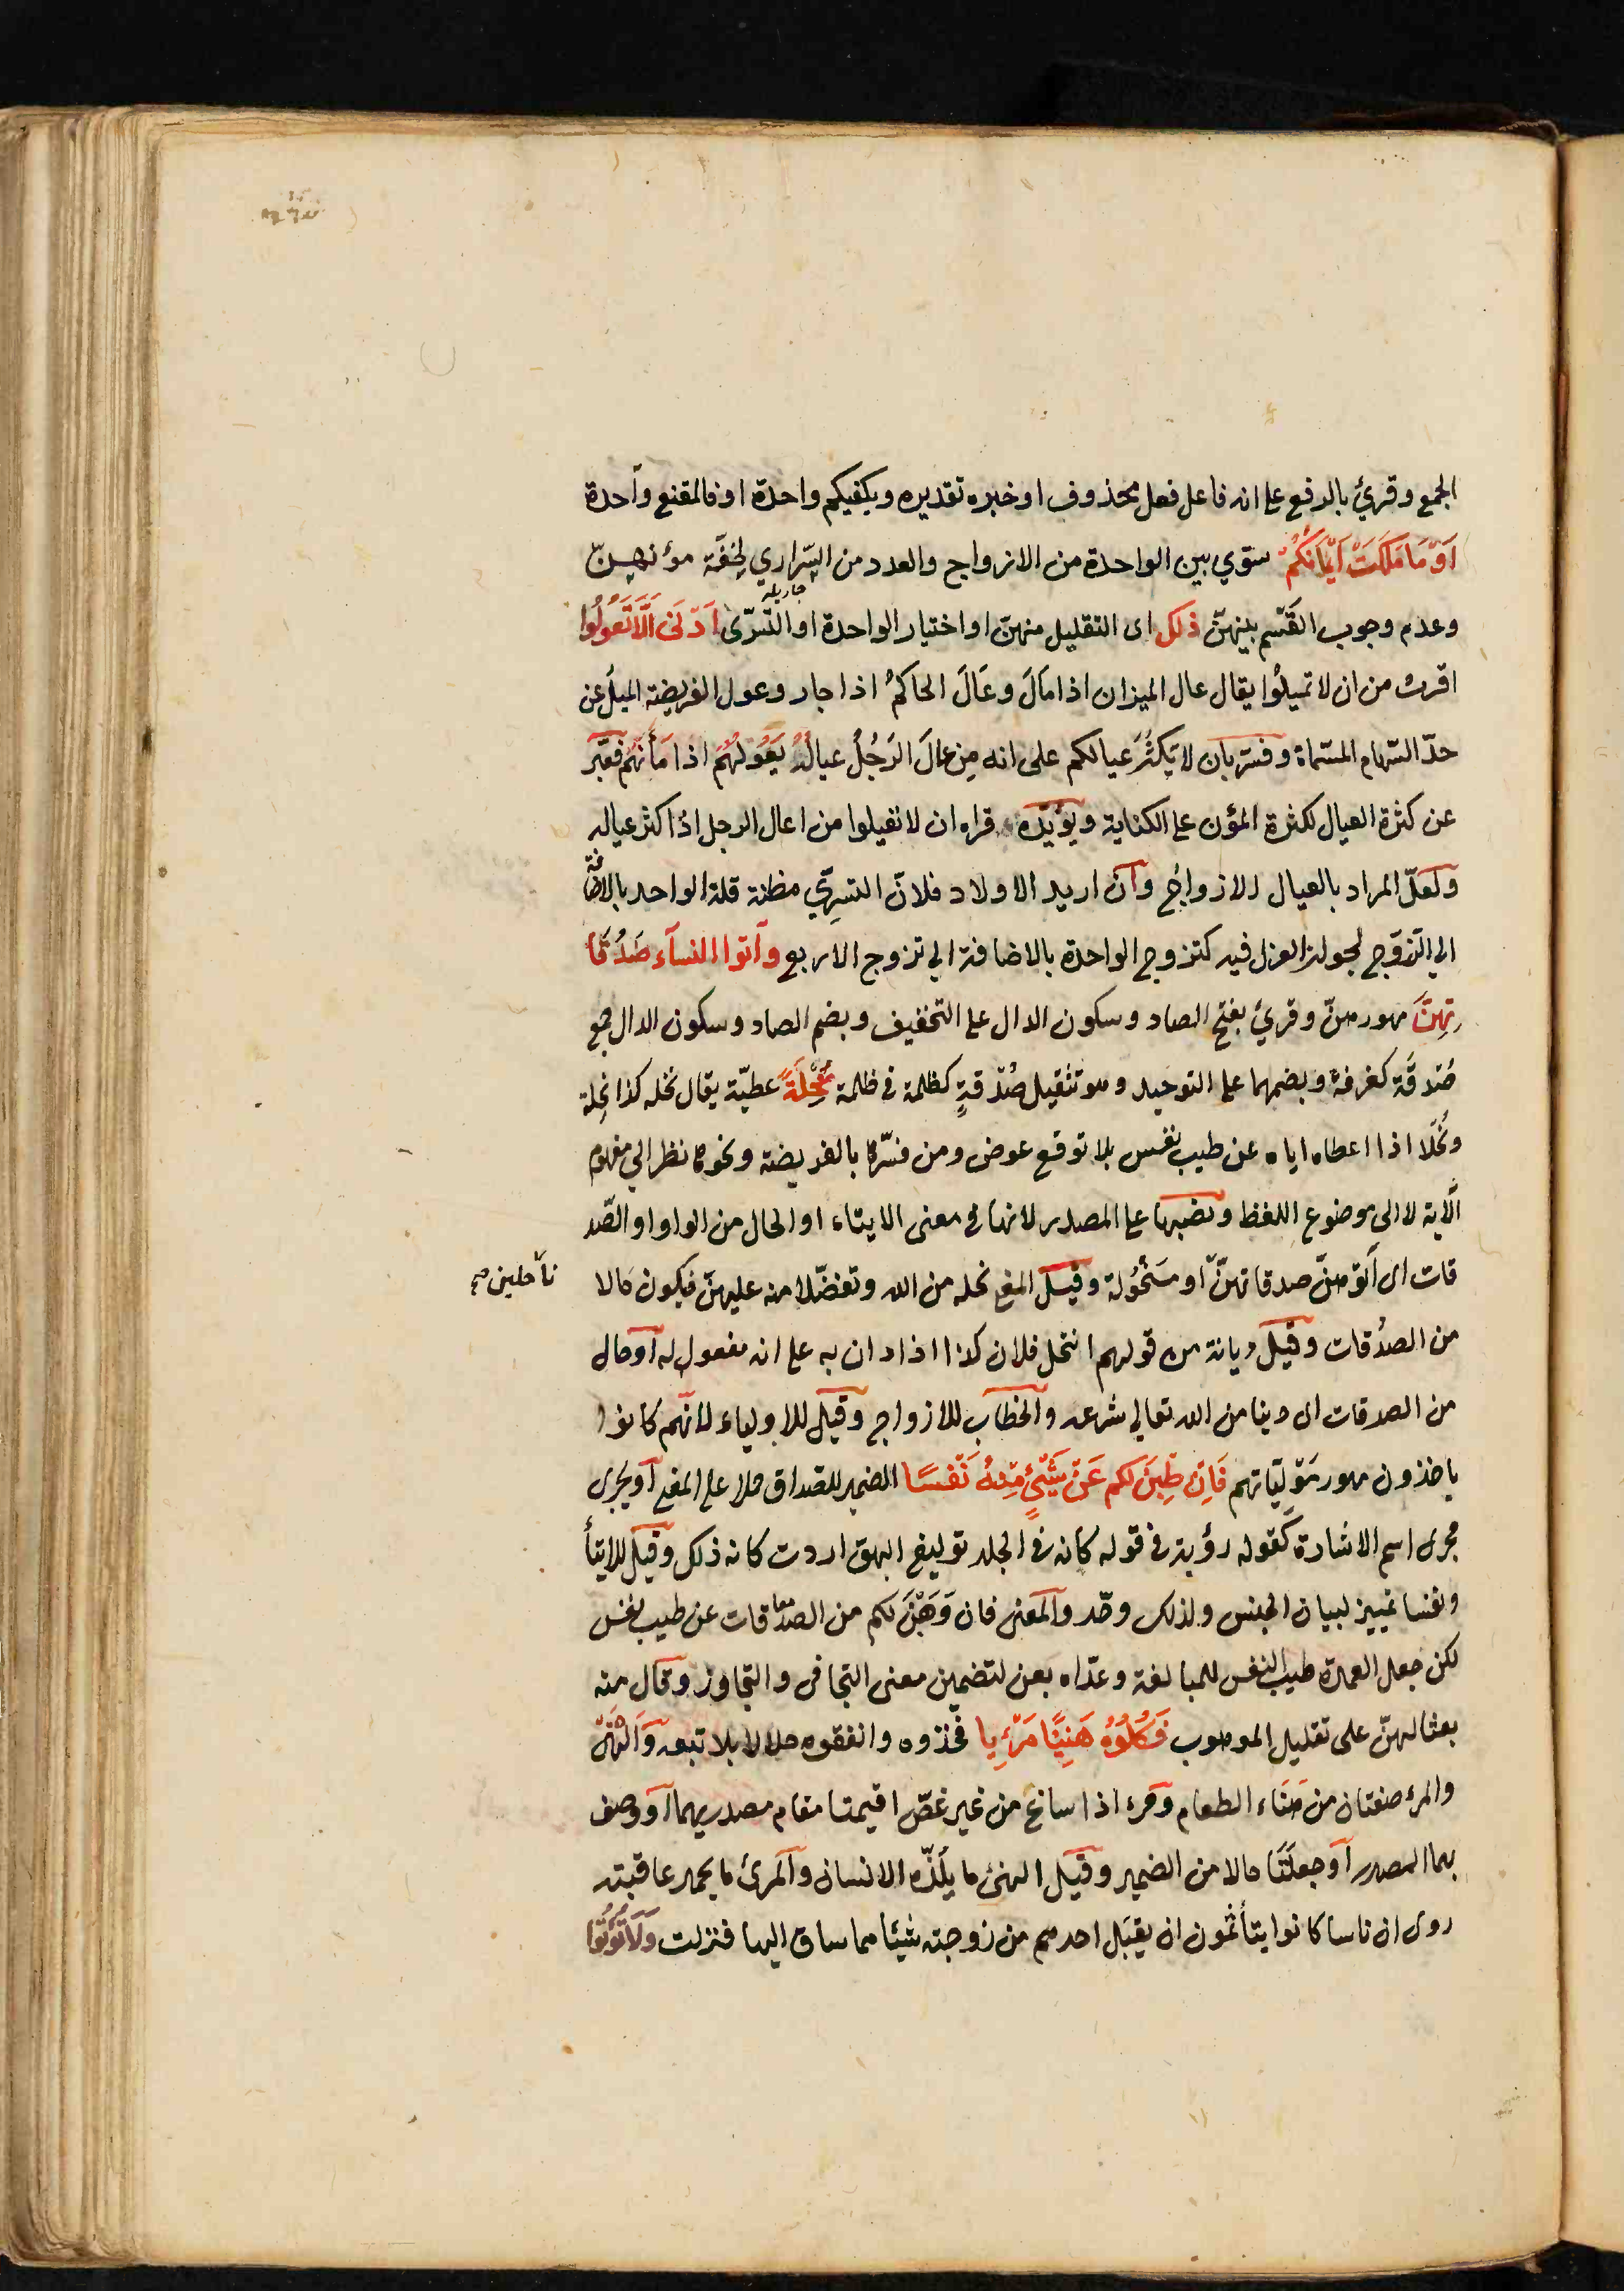 الجمع وقرئ بالرفع على انه فاعل فعل محذوف او خبره تقديره ويكفيكم واحدة او فالمقنع واحدة
اَوْ مَا مَلَكَتْ اَيْمَانُكُمْ سوّي بين الواحدة من الازواج والعدد من السّراري لخِفّة مؤنهنّ
وعدم وجوب القَسْم بينهنّ ذلك اى التقليل منهنّ او اختيار الواحدة او التسرّى اَدْنَى اَلَّا تَعُولُوا
جاريله
اقرب من ان لا تميلُوا يقال عال الميزان اذا مَالَ وعَالَ الحاكمُ اذا جار وعول الفريضة الميلُ عن
حدّ السّهام المسّماة وفسّر بان لا يَكثُرَ عيالكم على انه مِن عالَ الرَجُلُ عيالَهُ يَعُولهُم اذا مَأنَهُم فعَبّر
عن كثرة العيال لكثرة المؤن على الكناية ويؤيّده قراه ان لا تعيلوا من اعال الرجل اذا كثر عياله
ولعلّ المراد بالعيال الازواجُ وان اريد الاولاد فلانّ التسرّي مظنة قلة الواحد بالاضافة
الي التزوّج لجواز العزل فيه كتزوج الواحدة بالاضافة الي تزوج الاربع وآتوا النسآء صَدُقَا
تِهِنَّ مهورهنّ وقرئ بفتح الصاد وسكون الدال على التخفيف وبضم الصاد وسكون الدال جمع
صُدقَة كغرفة وبضمهما على التوحيد وهو تثقيل صُدْقةٍ كظلمة في ظلمة نِحْلَةً عطيّة يقال نحله كذا نِحلة
ونُحْلا اذا اعطاه اياه عن طيب نفس بلا توقع عوض ومن فسّرها بالفريضة ونحوها نظر الي مفهوم
الآية لا الى موضوع اللفظ ونصبها على المصدر لانها في معنى الايتاء او الحال من الواو او الصّد
قات اى آتوهنّ صدقاتهنّ او منْحُولة وقيل المعنى نحله من الله وتفضّلا منه عليهنّ فيكون حالا
ناحلين صح
من الصدُقات وقيل ديانة من قولهم انتحل فلان كذا اذا دان به على انه مفعول له او حال
من الصدقات اى دينا من الله تعالي شرعه والخطاب للازواج وقيل للاولياء لانهم كانوا
ياخذون مهور مَوْليّاتهم فَاِنْ طِبْنَ لكم عَنْ شَيْئٍ مِنْهُ نَفْسًا الضمير للصداق حملا على المعنى او يجرى
مجرى اسم الاشارة كقوله رؤبة في قوله كانه في الجلد توليع البهق اردت كانه ذلك وقيل للايتأ
ونفسا تمييز لبيان الجنس ولذلك وحّد والمعنى فان وَهَبْنَ لكم من الصدقات عن طيب نفس
لكن جعل العمدة طيب النفس للمبالغة وعدّاه بعن لتضمين معنى التجافى والتجاوز وقال منه
بعثا لهنّ على تقليل الموهوب فَكُلُوهُ هَنِيًئا مَرْئِا فخذوه وانفقوه حلالا بلا تبعه والهَنئ
والمرئ صفتان من هَنَاء الطعام ومرء اذا ساغ من غير غصّ اقيمتا مقام مصدريهما او وصف
بهما المصدر او جعلتا حالا من الضمير وقيل الهنئ ما يلذّه الانسان والمرئ ما يحمد عاقبته
روى ان ناسا كانوا يتأثمون ان يقبَل احدهم من زوجته شيئا مما ساق اليها فنزلت وَلاَ تُؤْتُوا